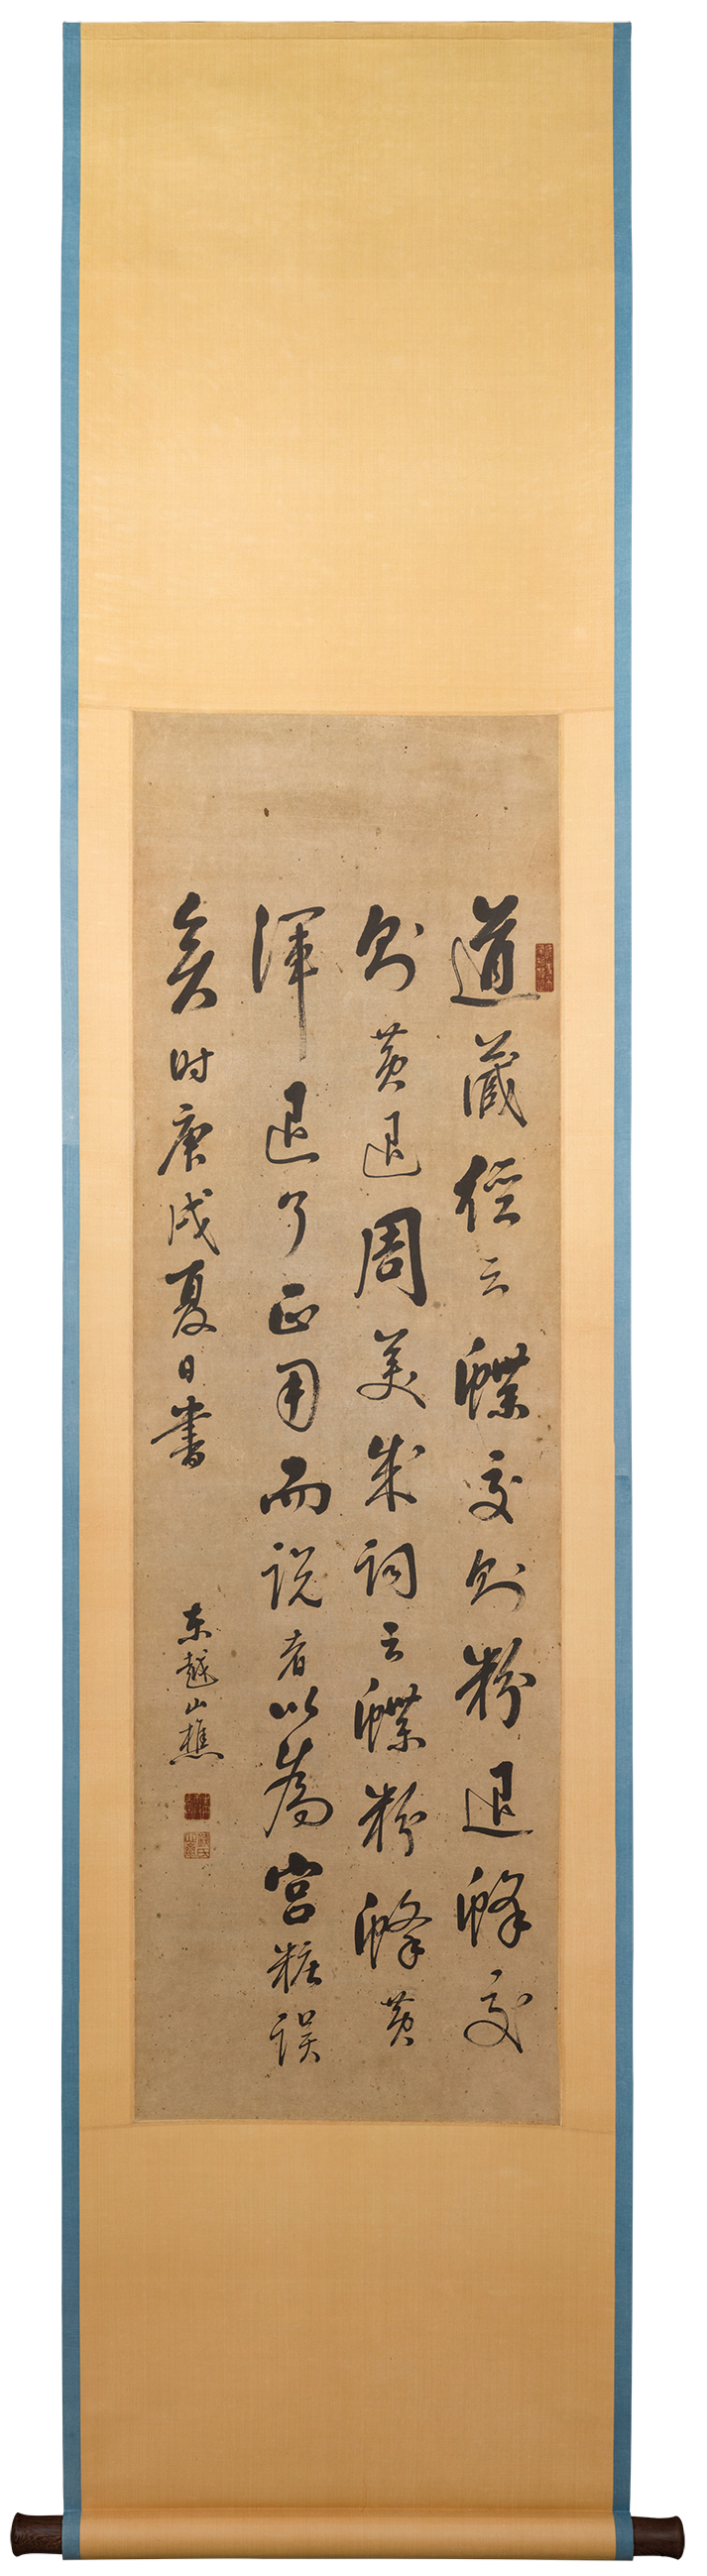 道藏經云蝶交则粉退蜂交
则黄退周美成词云蝶粉蜂黄
渾退了正用而説者以為宫粧誤
矣时庚戌夏日書
东越山樵